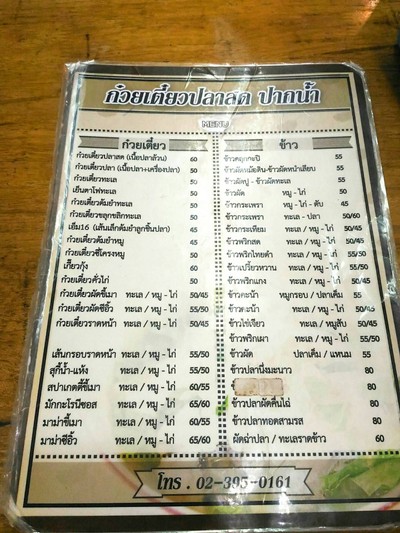 ก๋วยเตี๋ยวปลาสด ปากน้ำ
MENU
ก๋วยเตี๋ยว
ก๋วยเตี๋ยวปลาสด (เนื้อปลาล้วน) 60
ก๋วยเตี๋ยวปลา (เนื้อปลา+เครื่องปลา) 50
ก๋วยเตี๋ยวทะเล 50
เย็นตาโฟทะเล 50
ก๋วยเตี๋ยวต้มยำทะเล 50
ก๋วยเตี๋ยวขลุกขลิกทะเล 50
เอ็ม16 (เส้นเล็กต้มยำลูกชิ้นปลา) 45
ก๋วยเตี๋ยวต้มยำหมู 45
ก๋วยเตี๋ยวซี่โครงหมู 50
เกี๊ยวกุ้ง 60
ก๋วยเตี๋ยวคั่วไก่ 50
ก๋วยเตี๋ยวผัดขี้เมา ทะเล / หมู - ไก่ 50/45
ก๋วยเตี๋ยวผัดซีอิ๊ว ทะเล / หมู - ไก่ 50/45
ก๋วยเตี๋ยวราดหน้า ทะเล / หมู - ไก่ 50/45
เส้นกรอบราดหน้า ทะเล / หมู - ไก่ 55/50
สุกี้น้ำ-แห้ง ทะเล / หมู - ไก่ 55/50
สปาเกตตี้ขี้เมา ทะเล / หมู - ไก่ 60/55
มักกะโรนีซอส ทะเล / หมู - ไก่ 60/55
มาม่าขี้เมา ทะเล / หมู - ไก่ 60/55
มาม่าซีอิ๊ว ทะเล / หมู - ไก่ 65/60
ข้าว
ข้าวคลุกกะปิ 55
ข้าวผัดหน้าเลียบ 55
ข้าวผัดปู - ข้าวผัดทะเล 55
ข้าวผัด หมู - ไก่ 50
ข้าวกระเพรา หมู - ไก่ - ตับ 45
ข้าวกระเพรา ทะเล - ปลา 50/60
ข้าวกระเทียม ทะเล / หมู - ไก่ 50/45
ข้าวพริกสด ทะเล / หมู - ไก่ 50/45
ข้าวพริกไทยดำ ทะเล / หมู - ไก่ 55/50
ข้าวเปรี้ยวหวาน ทะเล / หมู - ไก่ 55/50
ข้าวพริกแกง ทะเล / หมู - ไก่ 50/45
ข้าวคะน้า หมูกรอบ / ปลาเค็ม 55
ข้าวคะน้า ทะเล / หมู - ไก่ 50/45
ข้าวไข่เจียว ทะเล / หมูสับ 50/45
ข้าวพริกเผา ทะเล / หมู - ไก่ 55/50
ข้าวผัด ปลาเค็ม / แหนม 55
ข้าวปลานึ่งมะนาว 80
80
ข้าวปลาผัดคื่นไฉ่ 80
ข้าวปลาทอดสามรส 80
ผัดฉ่าปลา / ทะเลราดข้าว 60
โทร . 02-395-0161